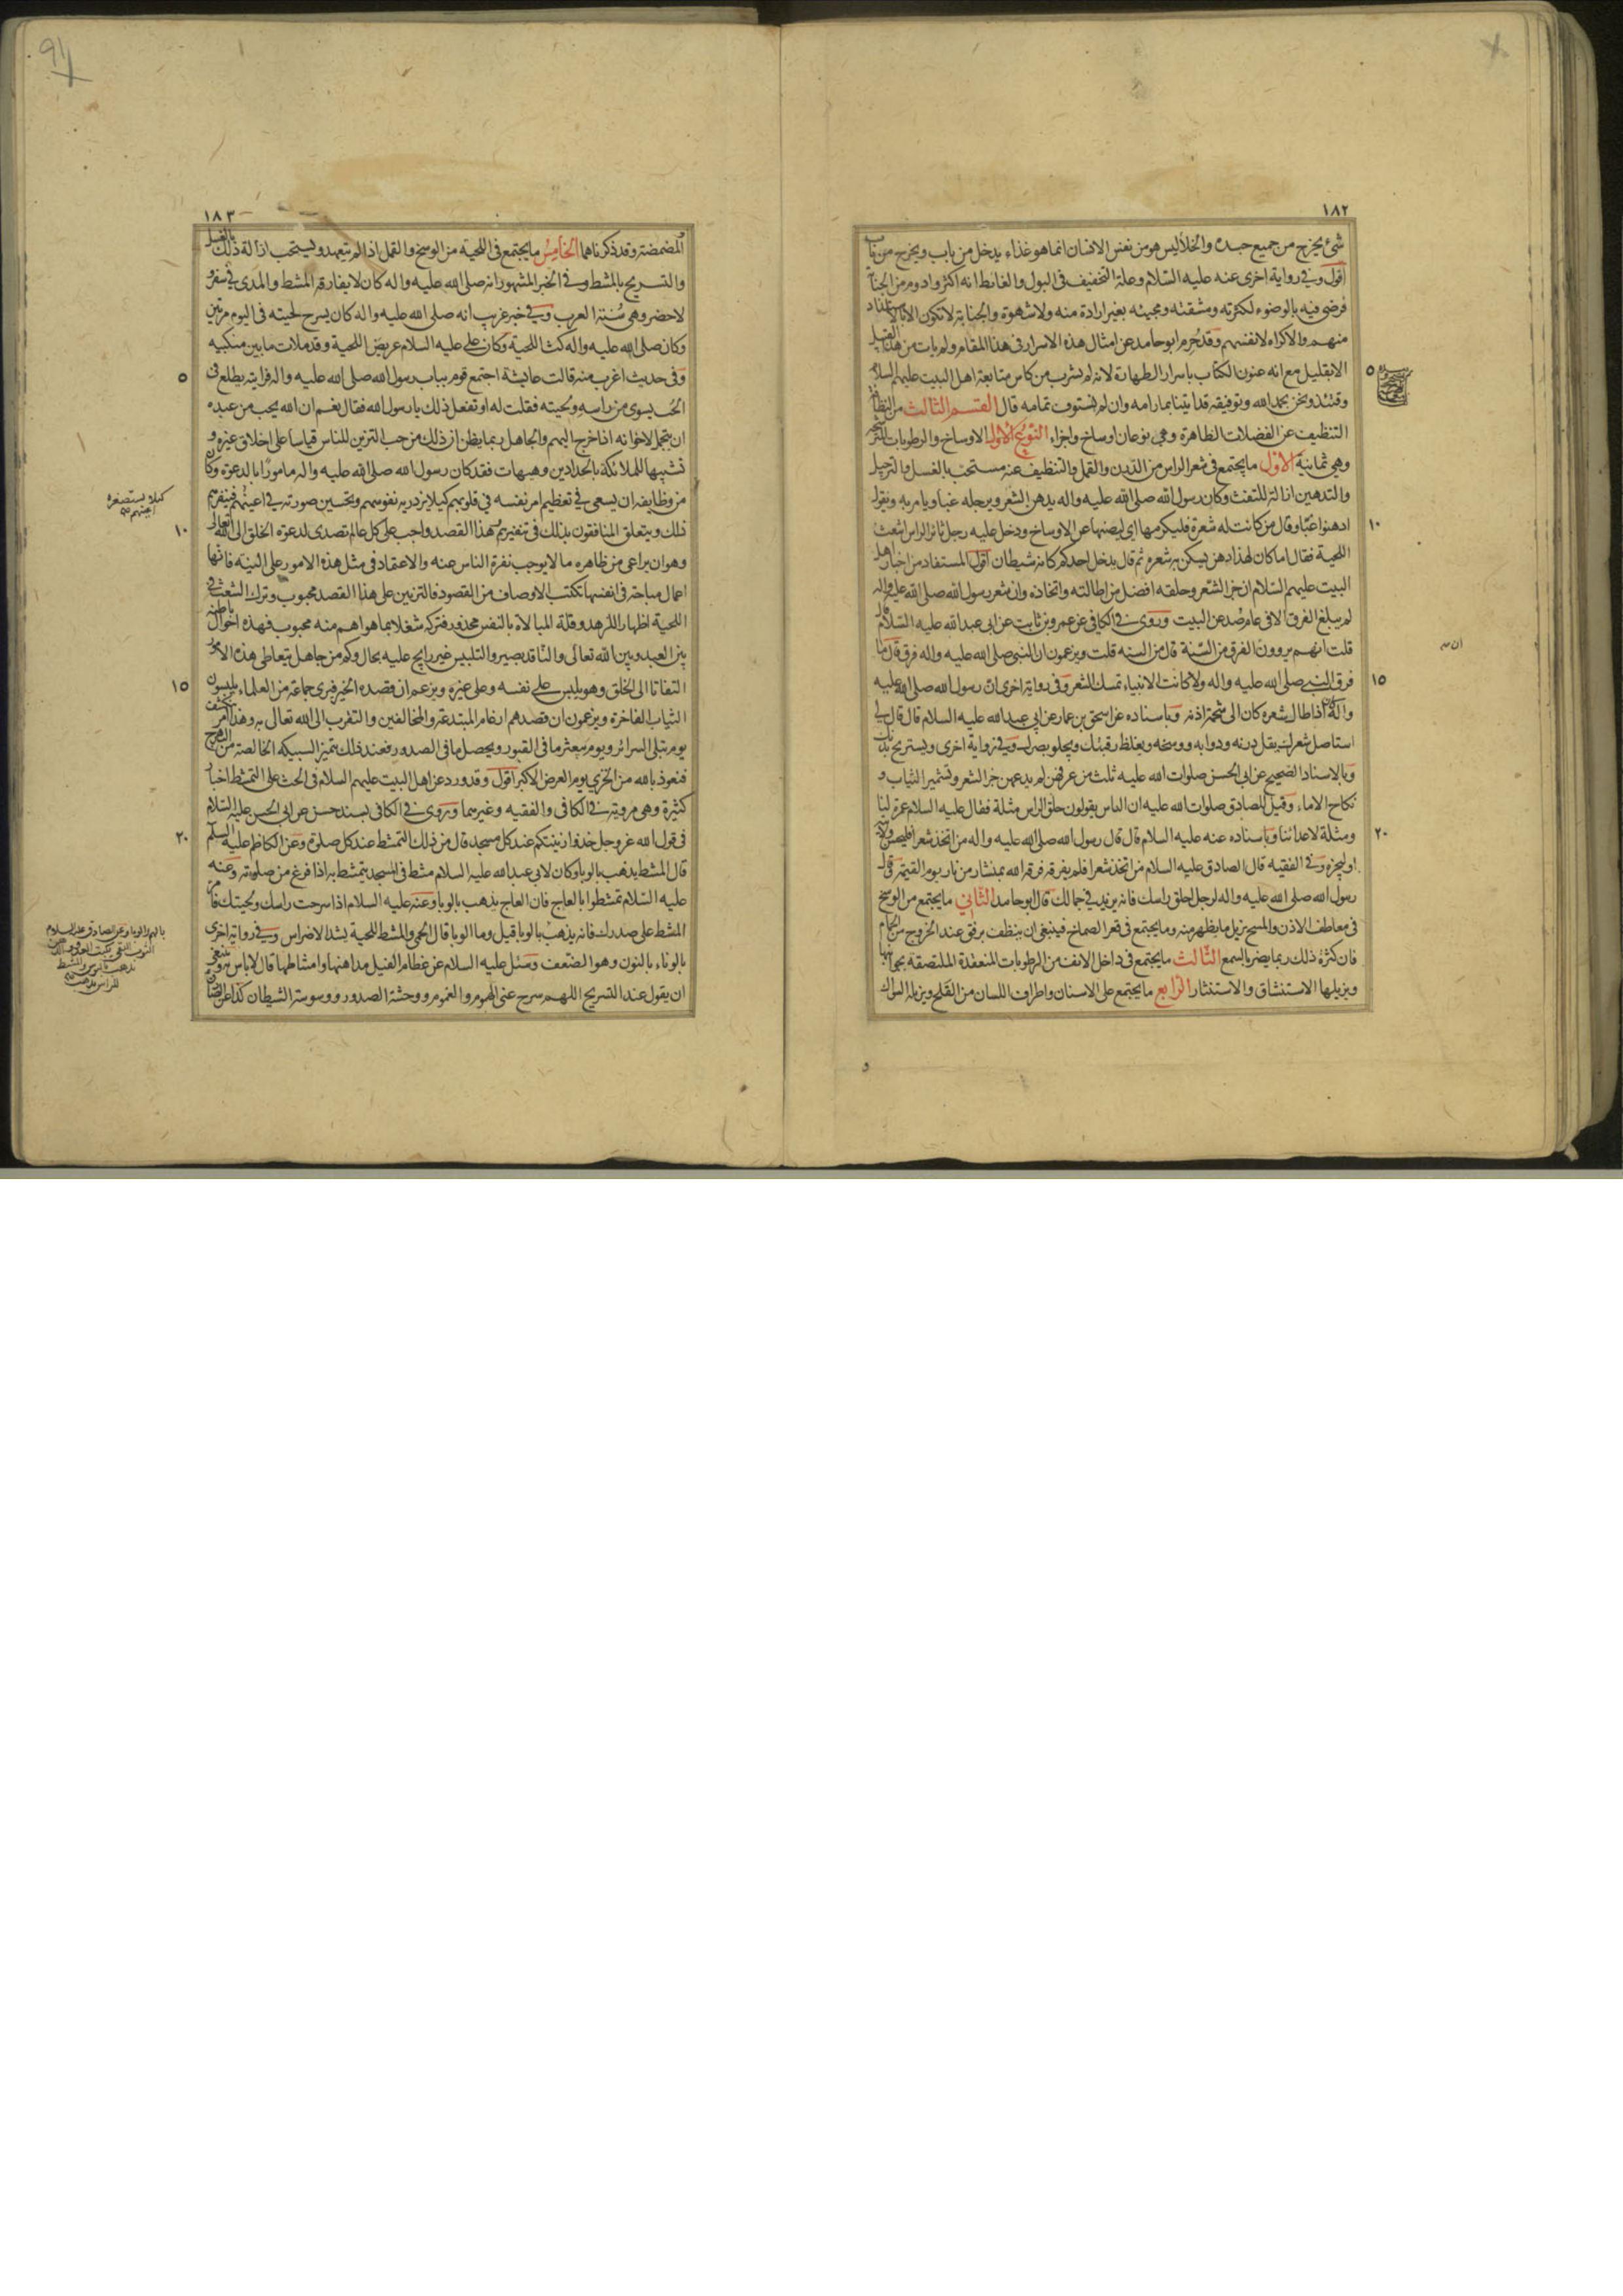 ١٨٢
شئ يخرج من جميع جسده والخلأ ليس هو من نفس الانسان انما هو غذاء يدخل من باب ويخرج من باب
اقول وفي رواية اخرى عنه عليه السلام وعلة التخفيف فى البول والغائط انه اكثر وادوم من الجنابة
فرضى فيه بالوضوء لكثرته ومشقته ومجيئه بغير ارادة منه ولا شهوة والجنابة لا تكون الا بالاستلذاذ
منهم والاكراه لانفسهم وقد حُرم ابو حامد عن امثال هذه الاسرار فى هذا المقام ولم يات من هذا القبيل
الا بقليل مع انه عنون الكتاب باسرار الطهارة لانه لم يشرب من كاس متابعة اهل البيت عليهم السلام
٥
وقتئذ ونحن بحمد الله وتوفيقه قد اتينا بمارامه وان لم نستوف تمامه قال القسم الثالث من النظافة
التنظيف عن الفضلات الظاهرة وهى نوعان اوساخ واجزاء النوع الاول الاوساخ والرطوبات المترشحة
وهى ثمانية الاول ما يجتمع فى شعر الراس من الدرن والقمل والتنظيف عنه مستحب بالغسل والترجيل
والتدهين ازالة للتفث وكان رسول الله صلى الله عليه واله يدهن الشعر ويرجله غبا ويامر به ويقول
ادهنوا غبّا وقال من كانت له شعرة فليكرمها اى ليصنها عن الاوساخ ودخل عليه رجل ثائر الراس اشعث
١٠
اللحية فقال اما كان لهذا دهن يسكن به شعره ثم قال يدخل احدكم كانه شيطان اقول المستفاد من اخبار اهل
البيت عليهم السلام ان جز الشعر وحلقه افضل من اطالته واتخاذه وان شعر رسول الله صلى الله عليه واله
لم يبلغ الفرق الا فى عام صُد عن البيت وروى فى الكافى عن عمرو بن ثابت عن ابى عبد الله عليه السلام قال
قلت انهم يروون الفرق من السّنة قال من السنه قلت ويزعمون ان النبى صلى الله عليه واله فرق قال ما
فرق النبى صلى الله عليه واله ولا كانت الانبياء تمسك الشعر وفى رواية اخرى ان رسول الله صلى الله عليه
١٥
واله كان اذا طال شعره كان الى شحمة اذنه وباسناده عن اسحق بن عمار عن ابى عبد الله عليه السلام قال قال لى
استاصل شعرك يقل درنه ودوابه ووسخه ويغلظ رقبتك ويجلو بصرك وفى رواية اخرى ويستريح بدنك
وبالاسناد الصحيح عن ابى الحسن صلوات الله عليه ثلث من عرفهن لم يدعهن جز الشعر وتشمير الثياب و
نكاح الاماء وقيل للصادق صلوات الله عليه ان الناس يقولون حلق الراس مثلة فقال عليه السلام عمرة لنا
ومثلة لاعدائنا وباسناده عنه عليه السلام قال قال رسول الله صلى الله عليه واله من اتخذ شعرا فليحسن ولايته
٢٠
او ليجزه وفى الفقيه قال الصادق عليه السلام من اتخذ شعرا فلم يفرقه فرقه الله بمنشار من نار يوم القيمة وقال
رسول الله صلى الله عليه واله لرجل احلق راسك فانه يزيد فى جمالك قال ابو حامد الثانى ما يجتمع من الوسخ
فى معاطف الاذن والمسح يزيل ما يظهر منه وما يجتمع فى قعر الصماخ فينبغى ان ينظف برفق عند الخروج من الحمام
فان كثرة ذلك ربما يضر بالسمع الثالث ما يجتمع فى داخل الانف من الرطوبات المنعقدة الملتصقة بجوانبها
ويزيلها الاستنشاق والاستنثار الرابع ما يجتمع على الاسنان واطراف اللسان من القلح ويزيله السواك
و
١٨٣
المضمضة وقد ذكرناهما الخامس ما يجتمع فى اللحية من الوسخ والقمل اذا لم يتعهد ويستحب ازالة ذلك بالغسل
والتسريح بالمشط وفى الخبر المشهور انه صلى الله عليه واله كان لا يفارقه المشط والمدرى فى سفر و
لا حضر وهى سُنة العرب وفى خبر غريب انه صلى الله عليه واله كان يسرح لحيته فى اليوم مرتين
وكان صلى الله عليه واله كث اللحية وكان على عليه السلام عريض اللحية وقد ملات ما بين منكبيه
وفى حديث اغرب منه قالت عايشة اجتمع قوم بباب رسول الله صلى الله عليه واله فرايته يطلع فى
٥
الحُب يسوى من راسه ولحيته فقلت له او تفعل ذلك يا رسول الله فقال نعم ان الله يحب من عبده
ان يتجمل لاخوانه اذا خرج اليهم والجاهل ربما يظن ان ذلك من حب التزين للناس قياسا على اخلاق غيره و
تشبيها للملائكة بالحدادين وهيهات فقد كان رسول الله صلى الله عليه واله مامورًا بالدعوة وكان
من وظايفه ان يسعى فى تعظيم امر نفسه فى قلوبهم كيلا تزدريه نفوسهم وتحسين صورته فى اعينهم فينفرهم
كيلا يستصغره اعينهم
ذلك ويتعلق المنافقون بذلك فى تنفيرهم وهذا القصد واجب على كل عالم تصدى لدعوة الخلق الى الله تعالى
١٠
وهو ان يراعى من ظاهره ما لا يوجب نفرة الناس عنه والاعتماد فى مثل هذه الامور على النية فانها
اعمال مباحة فى انفسها تكتسب الاوصاف من القصود فالتزيين على هذا القصد محبوب وترك الشعث فى
اللحية اظهارا للزهد وقلة المبالاة بالنفس محذور وتركه شغلا بما هو اهم منه محبوب فهذه احوال باطنة
بين العبد وبين الله تعالى والناقد بصير والتلبيس غير رايج عليه بحال وكم من جاهل يتعاطى هذه الامور
التفاتا الى الخلق وهو يلبس على نفسه وعلى غيره ويزعم ان قصده الخير فيرى جماعة من العلماء يلبسون
١٥
الثياب الفاخرة ويزعمون ان قصدهم ارغام المبتدعة والمخالفين والتقرب الى الله تعالى به وهذا امر ينكشف
يوم تبلى السرائر ويوم يبعثر ما فى القبور ويحصل ما فى الصدور فعند ذلك يتميز السبيكة الخالصة من البهرج
فنعوذ بالله من الخزى يوم العرض الاكبر اقول وقد ورد عن اهل البيت عليهم السلام فى الحث على التمشط اخبار
كثيرة وهى مروية فى الكافى والفقيه وغيرهما وروى فى الكافى بسند حسن عن ابى الحسن عليه السلام
فى قول الله عز وجل خذوا زينتكم عند كل مسجد قال من ذلك التمشط عند كل صلوة وعن الكاظم عليه السلم
٢٠
قال المشط يذهب بالوبا وكان لابى عبد الله عليه السلام مشط فى المسجد يتمشط به اذا فرغ من صلوته وعنه
عليه السلام تمشطوا بالعاج فان العاج يذهب بالوبا وعنه عليه السلام اذا سرحت راسك ولحيتك فامر
المشط على صدرك فانه يذهب بالوبا قيل وما الوبا قال الحمى والمشط للحية يشد الاضراس وفى رواية اخرى
بالوناء بالنون وهو الضعف وسئل عليه السلام عن عظام الفيل مداهنها وامشاطها قال لا باس به وينبغى
ان يقول عند التسريح اللهم سرح عنى الهموم والغموم ووحشة الصدور ووسوسة الشيطان كذا عن الصادق